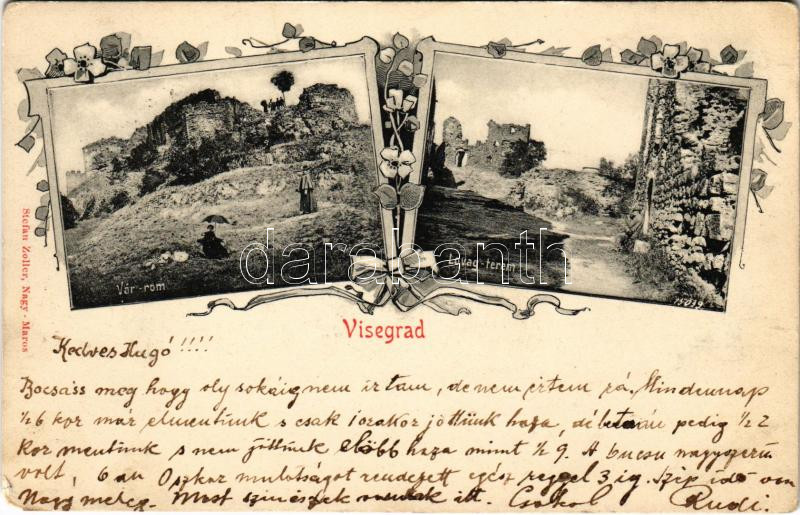 Vár-rom
Lovag-terem
15039
darabanth
Stefan Zoller, Nagy-Maros
Visegrad
Kedves Hugó!!!!
Bocsáss meg hogy oly sokáig nem irtam, de nem értem rá. Mindennap
½6 kor már elmentünk s csak 1 orakor jöttünk haza, délután pedig ½2
kor mentünk s nem jöttünk előbb haza mint ½9. A bucsu nagyszerü
volt, 6 an Oszkar mulatságot rendezett egész reggel 3 ig. Szép idő van
Nagy meleg. Most szinészek vannak itt. Csokol Rudi.